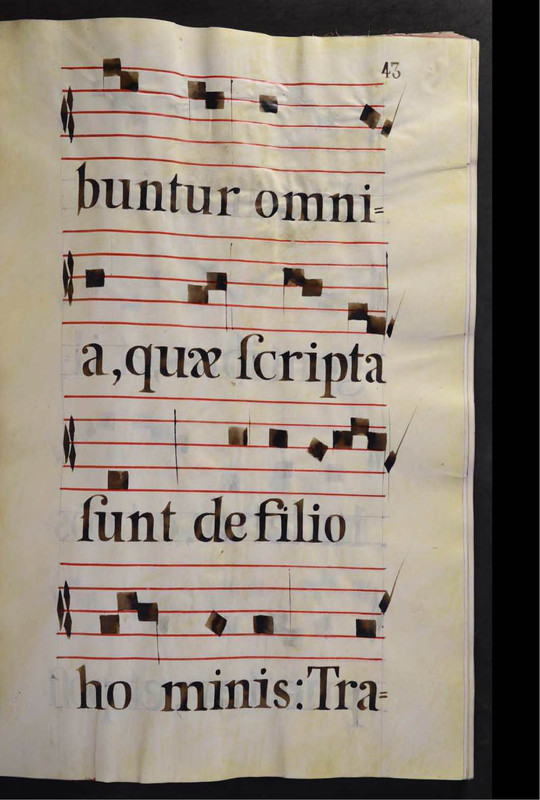 43
buntur omni=
a,quæ ſcripta
ſunt de filio
ho minis:Tra=